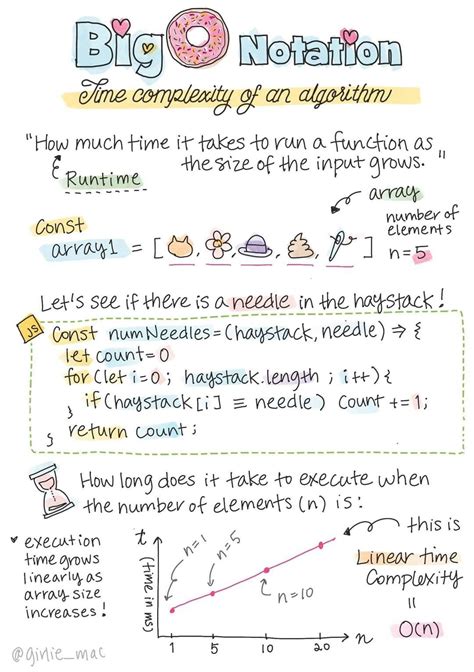 Big O Notation
Time complexity of an algorithm
"How much time it takes to run a function as
the size of the input grows."
Runtime
array
Const
array1 = [ , , , , ]
number of
elements
n=5
Let's see if there is a needle in the haystack!
JS
Const numNeedles = (haystack, needle) => {
let count=0
for (let i=0 ; haystack.length ; i++) {
if (haystack[i] ≡ needle) Count += 1;
}
return count;
}
How long does it take to execute when
the number of elements (n) is:
execution
time grows
linearly as
array size
increases!
t
(time in ms)
n=1
n=5
n=10
1 5 10 20
n
this is
Linear time
Complexity
=
O(n)
@girlie_mac